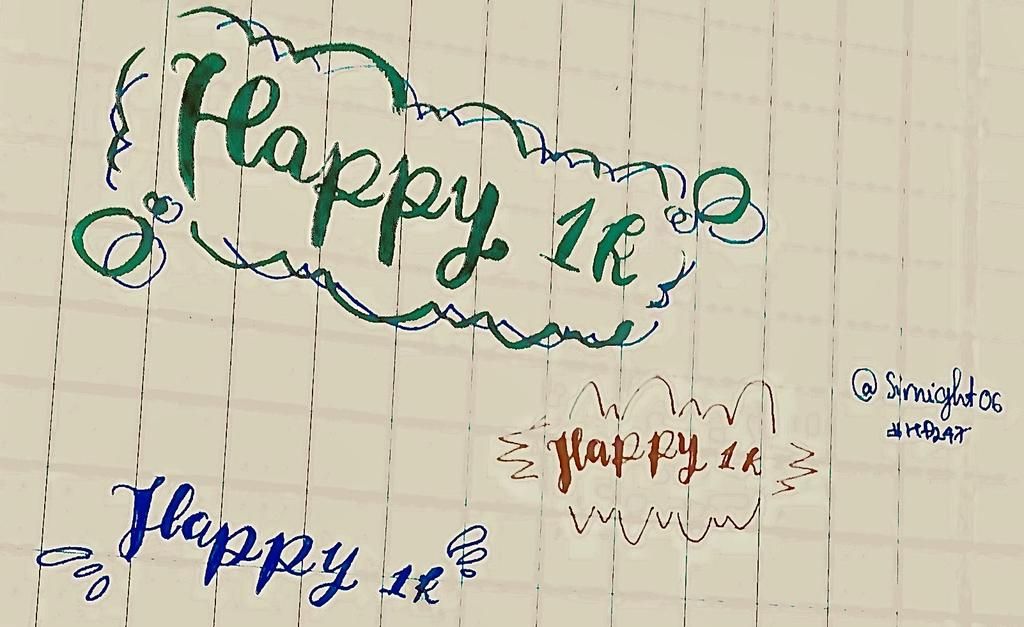 Happy 1k
Happy 1k
@Simight06
Happy 1k